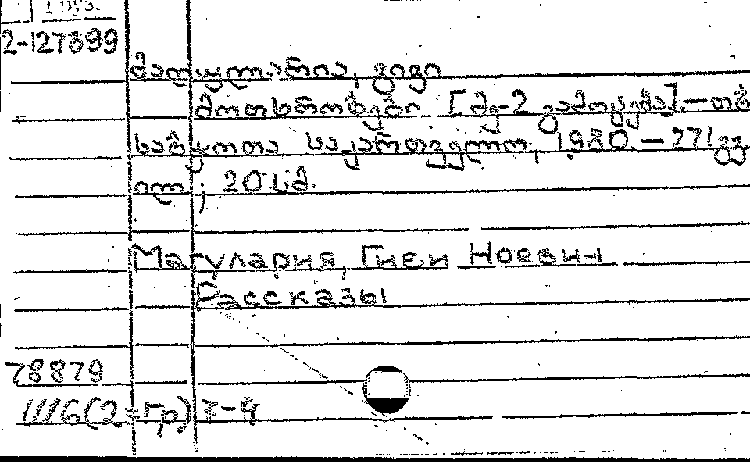 1 груз.
2-127899
მაღულარია, გივი
მოთხრობები [მე-2 გამოცემა].-თბ
საბჭოთა საქართველო, 1980.-271გვ
ილ; 20სმ.
Магулария, Гиви Ноевич
Рассказы
78879
Ш6(2=Гр)7-4